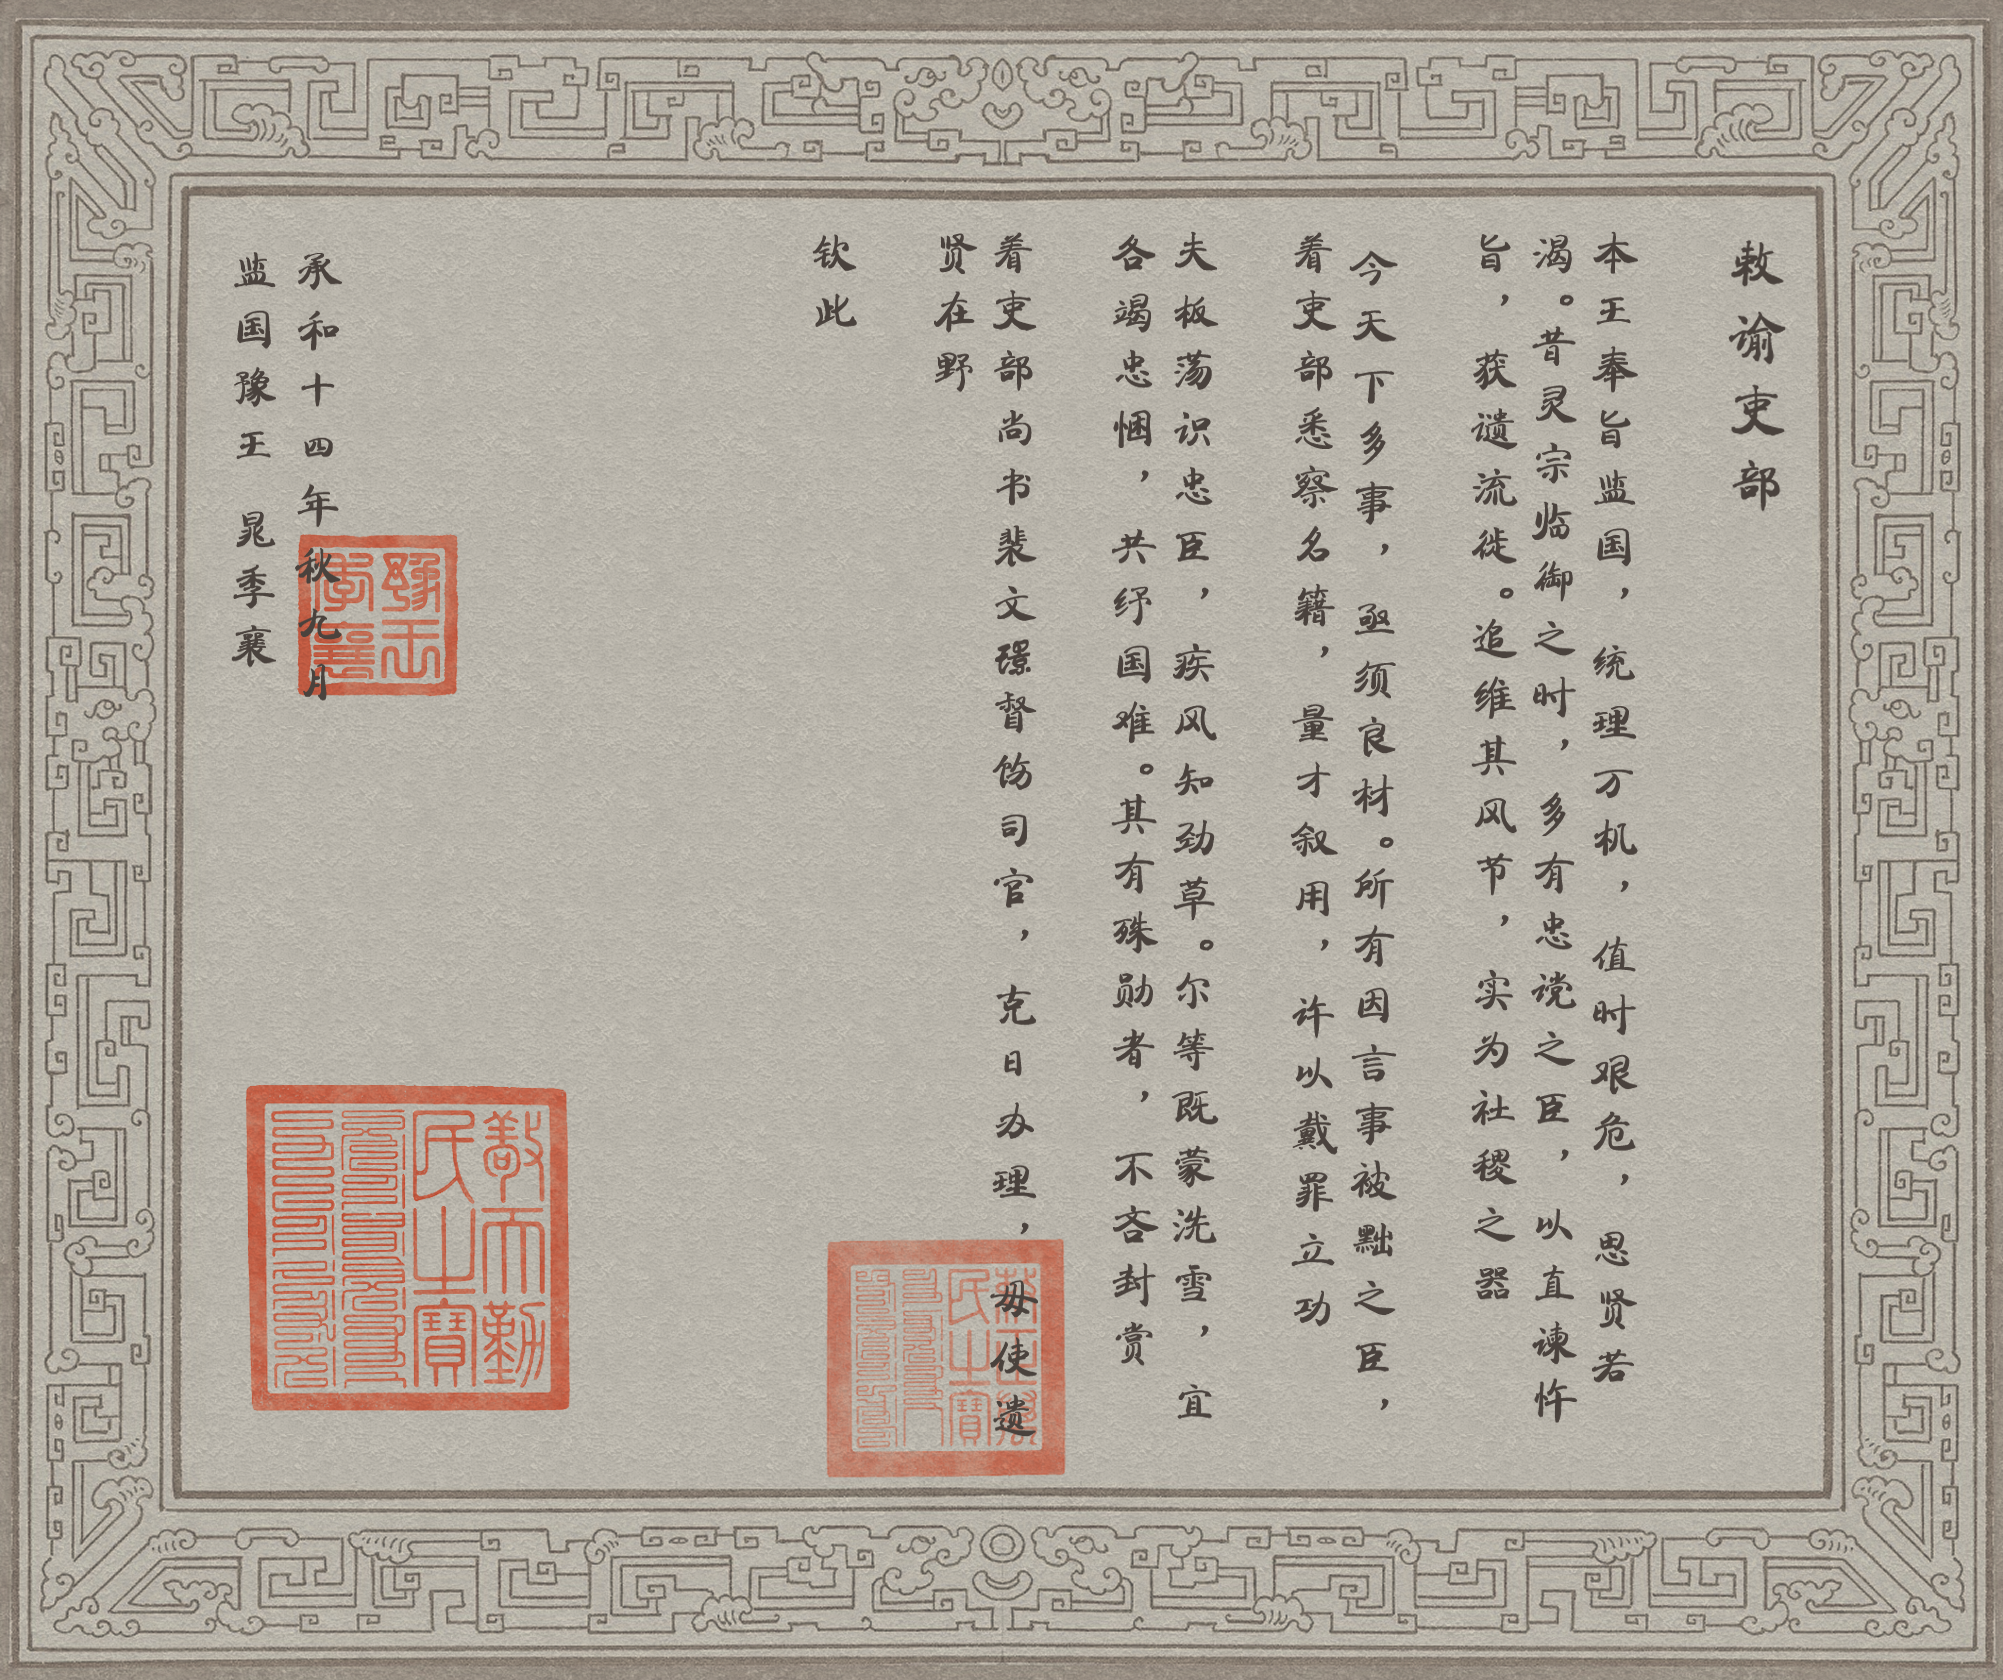 敕谕吏部
本王奉旨监国，统理万机，值时艰危，思贤若
渴。昔灵宗临御之时，多有忠谠之臣，以直谏忤
旨，获谴流徙。追维其风节，实为社稷之器
今天下多事，亟须良材。所有因言事被黜之臣，
着吏部悉察名籍，量才叙用，许以戴罪立功
夫板荡识忠臣，疾风知劲草。尔等既蒙洗雪，宜
各竭忠悃，共纾国难。其有殊勋者，不吝封赏
着吏部尚书裴文璟督饬司官，克日办理，毋使遗
贤在野
钦此
承和十四年秋九月
监国豫王 晁季襄
豫王
季襄
民之寶
民之寶